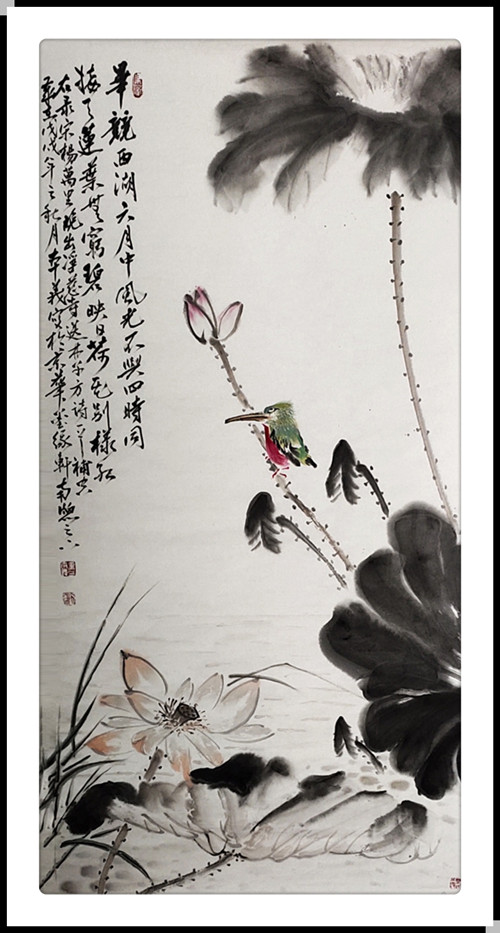 畢競西湖六月中風光不與四時同
接天蓮葉無窮碧映日荷花別樣紅
右录宋楊萬里曉出淨慈寺送林子方詩一首補空
歲在戊戌年之秋月義寫於京華墨緣軒南窗之下